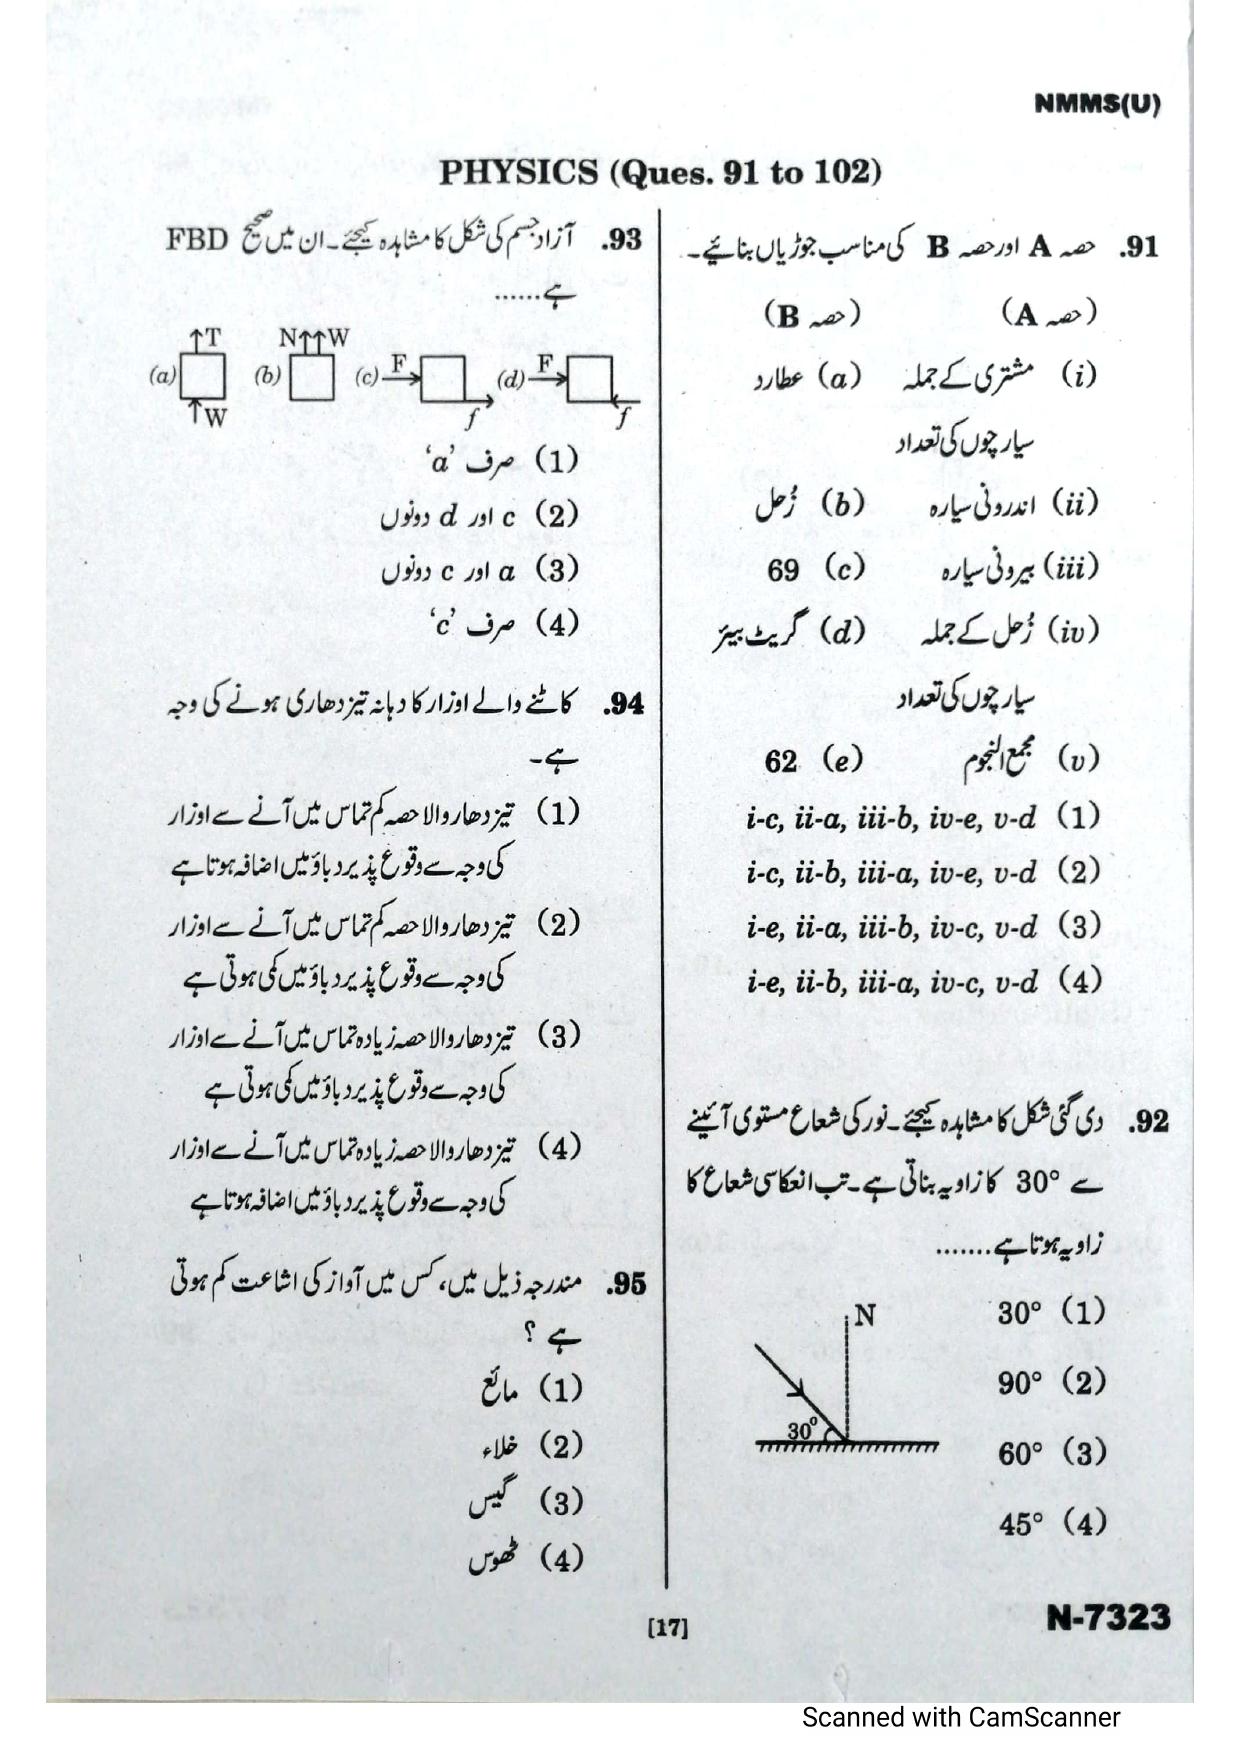 NMMS(U)
PHYSICS (Ques. 91 to 102)
91. حصہ A اور حصہ B کی مناسب جوڑیاں بنائیے۔
(حصہ A) (حصہ B)
(i) مشتری کے جملہ (a) عطارد
سیارچوں کی تعداد
(ii) اندرونی سیارہ (b) زُحل
(iii) بیرونی سیارہ (c) 69
(iv) زُحل کے جملہ (d) گریٹ بیئر
سیارچوں کی تعداد
(v) مجمع النجوم (e) 62
(1) i-c, ii-a, iii-b, iv-e, v-d
(2) i-c, ii-b, iii-a, iv-e, v-d
(3) i-e, ii-a, iii-b, iv-c, v-d
(4) i-e, ii-b, iii-a, iv-c, v-d
92. دی گئی شکل کا مشاہدہ کیجئے۔ نور کی شعاع مستوی آئینے
سے 30° کا زاویہ بناتی ہے۔ تب انعکاسی شعاع کا
زاویہ ہوتا ہے.......
(1) 30°
(2) 90°
(3) 60°
(4) 45°
N
30°
93. آزاد جسم کی شکل کا مشاہدہ کیجئے۔ ان میں صحیح FBD
ہے......
(a) T W (b) N W (c) F f (d) F f
(1) صرف 'a'
(2) c اور d دونوں
(3) a اور c دونوں
(4) صرف 'c'
94. کاٹنے والے اوزار کا دہانہ تیز دھاری ہونے کی وجہ
ہے۔
(1) تیز دھار والا حصہ کم تماس میں آنے سے اوزار
کی وجہ سے وقوع پذیر دباؤ میں اضافہ ہوتا ہے
(2) تیز دھار والا حصہ کم تماس میں آنے سے اوزار
کی وجہ سے وقوع پذیر دباؤ میں کمی ہوتی ہے
(3) تیز دھار والا حصہ زیادہ تماس میں آنے سے اوزار
کی وجہ سے وقوع پذیر دباؤ میں کمی ہوتی ہے
(4) تیز دھار والا حصہ زیادہ تماس میں آنے سے اوزار
کی وجہ سے وقوع پذیر دباؤ میں اضافہ ہوتا ہے
95. مندرجہ ذیل میں، کس میں آواز کی اشاعت کم ہوتی
ہے ؟
(1) مائع
(2) خلاء
(3) گیس
(4) ٹھوس
[17]
N-7323
Scanned with CamScanner